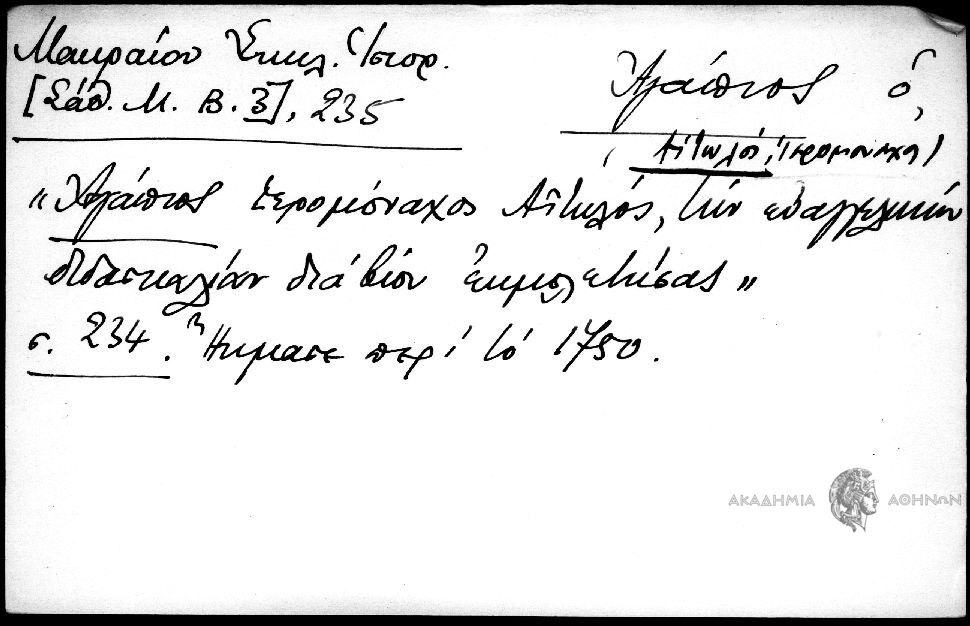 Μακραίου Ἐκκλ. Ἱστορ.
[Σάθ. Μ. Β. 3], 235
Ἀγάπιος ὁ,
(Αἰτωλός, ἱερομόναχος)
"Ἀγάπιος ἱερομόναχος Αἰτωλός, τὴν εὐαγγελικὴν
διδασκαλίαν διὰ βίου ἐκμελετήσας"
σ. 234. Ἤκμασε περὶ τὸ 1750.
ΑΚΑΔΗΜΙΑ ΑΘΗΝΩΝ